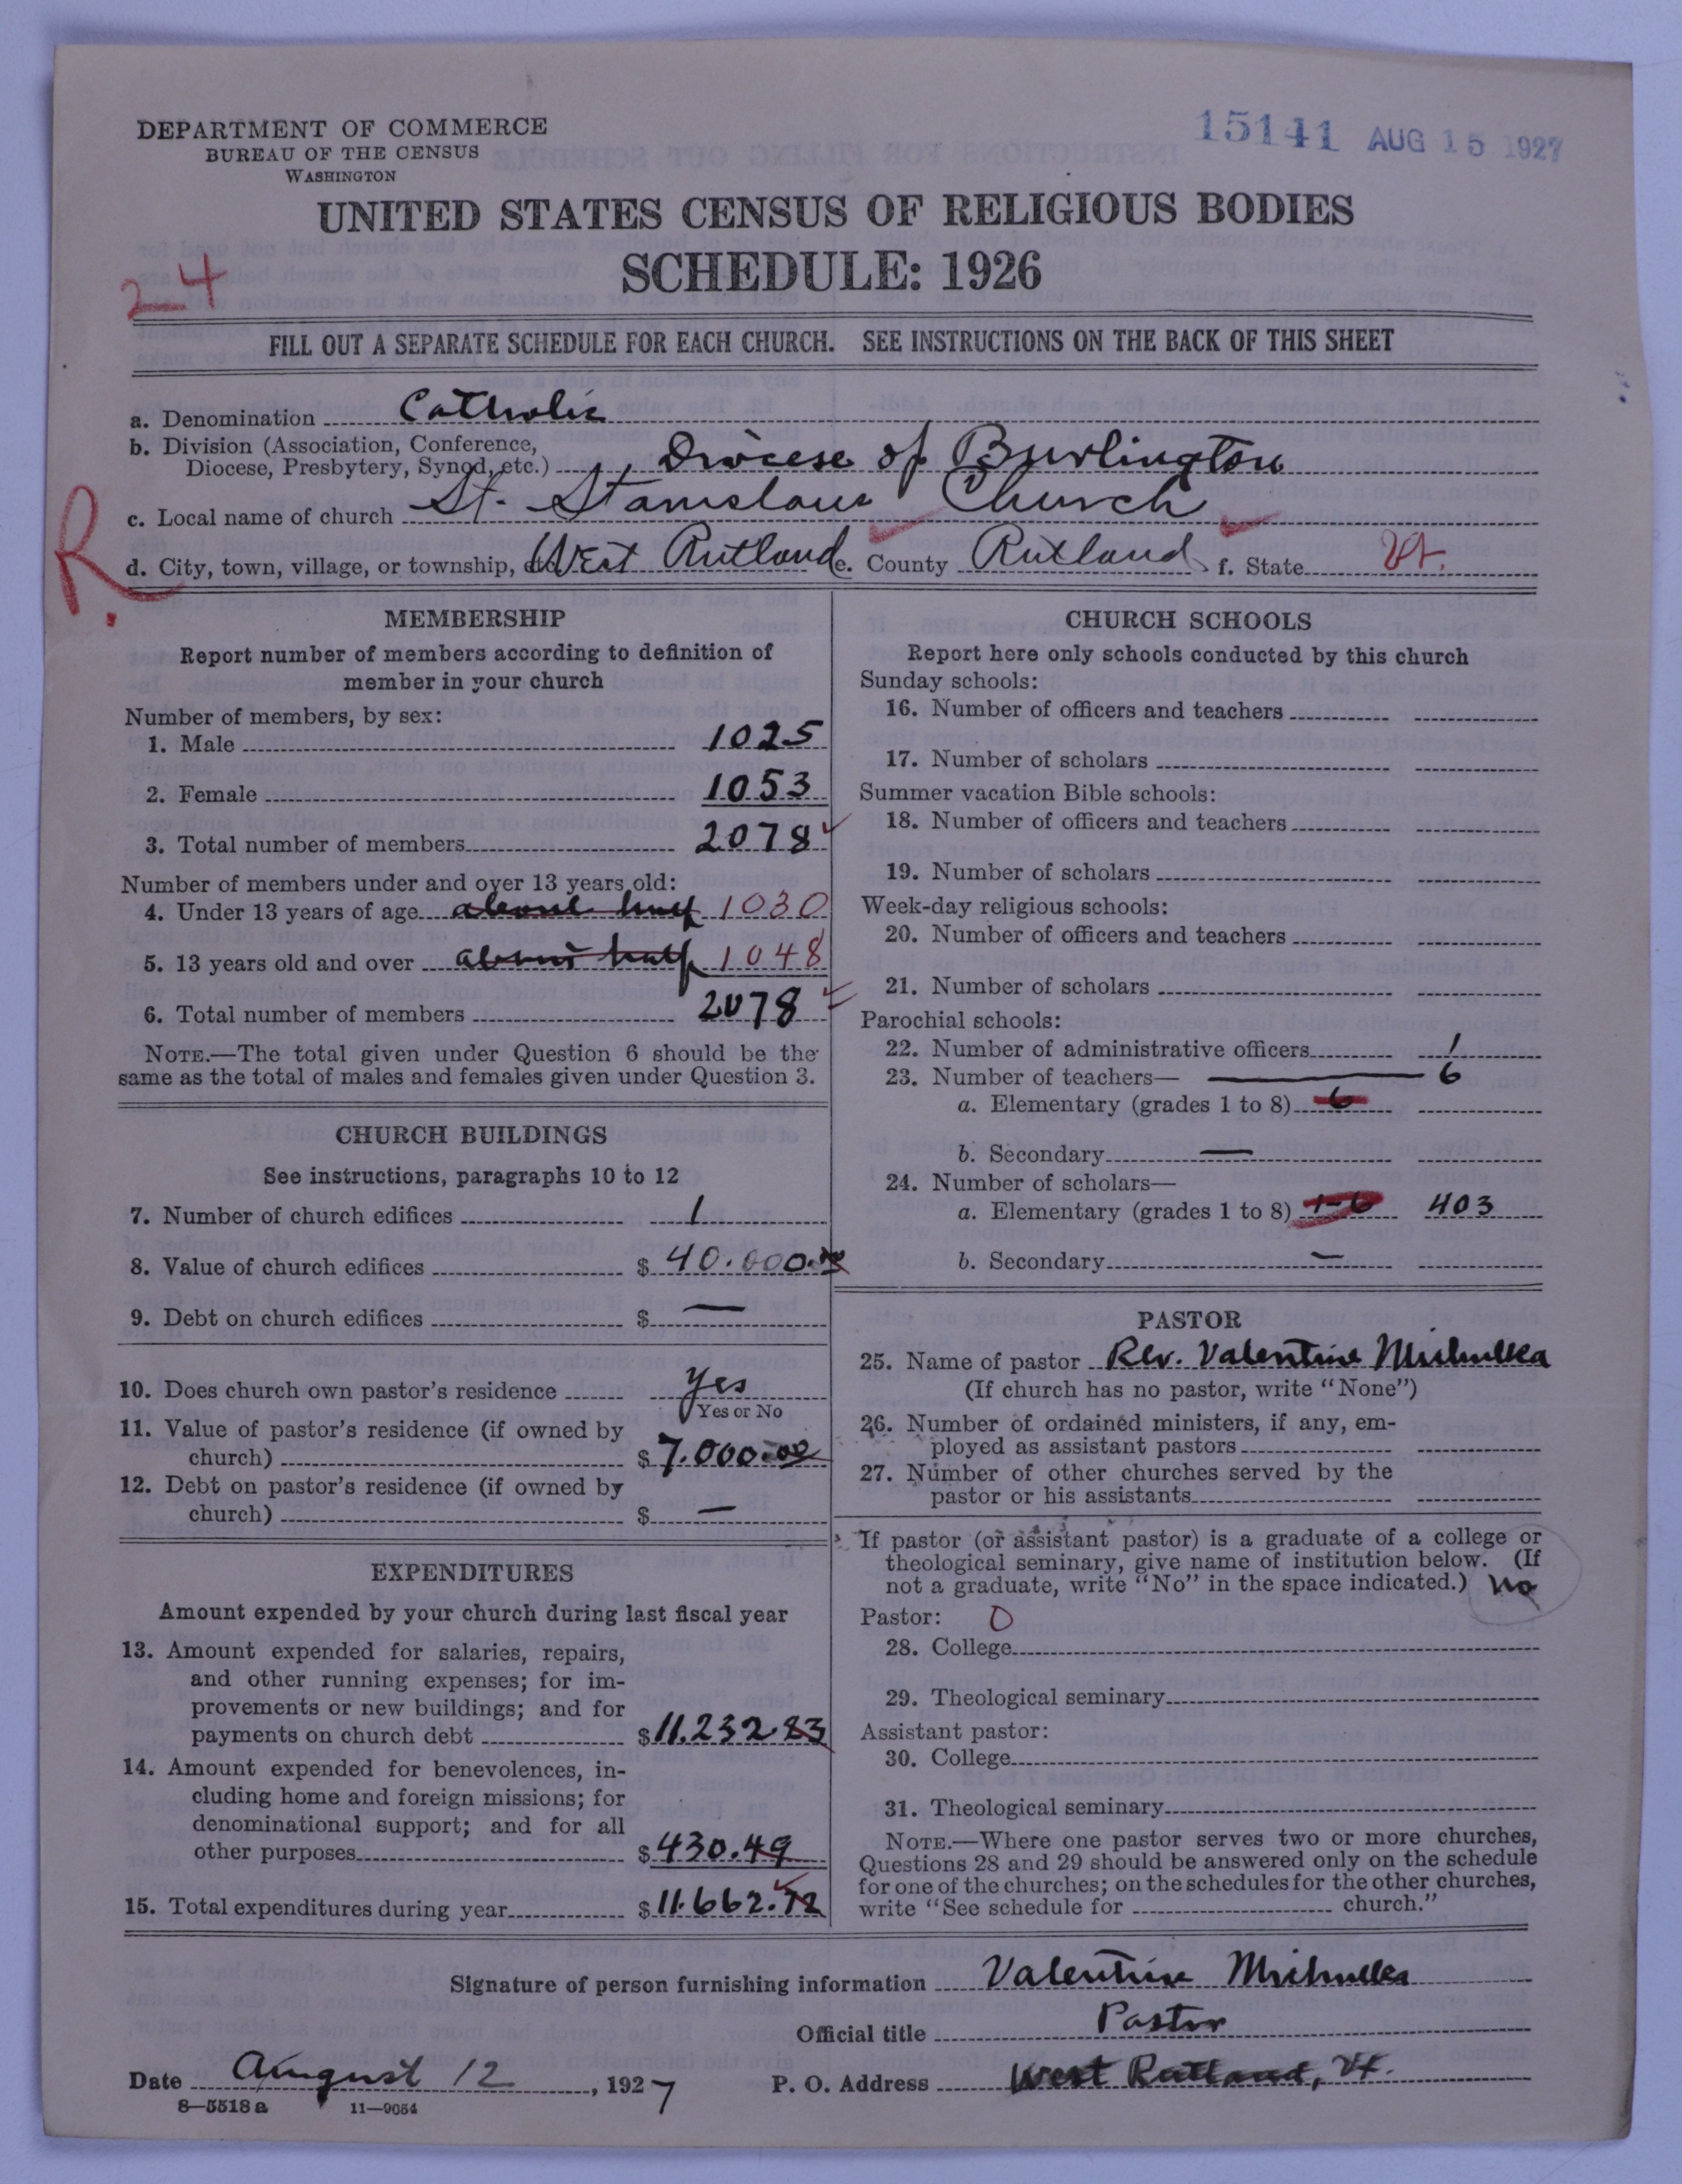 15141 AUG 15 1927
DEPARTMENT OF COMMERCE
BUREAU OF THE CENSUS
WASHINGTON
UNITED STATES CENSUS OF RELIGIOUS BODIES
SCHEDULE: 1926
24
FILL OUT A SEPARATE SCHEDULE FOR EACH CHURCH. SEE INSTRUCTIONS ON THE BACK OF THIS SHEET
a. Denomination Catholic
b. Division (Association, Conference,
Diocese, Presbytery, Synod, etc.) Diocese of Burlington
c. Local name of church St. Stanislaus Church
R.
d. City, town, village, or township, etc. West Rutland e. County Rutland f. State Vt.
MEMBERSHIP
Report number of members according to definition of
member in your church
Number of members, by sex:
1. Male 1025
2. Female 1053
3. Total number of members 2078
Number of members under and over 13 years old:
4. Under 13 years of age about half 1030
5. 13 years old and over about half 1048
6. Total number of members 2078
NOTE.—The total given under Question 6 should be the
same as the total of males and females given under Question 3.
CHURCH BUILDINGS
See instructions, paragraphs 10 to 12
7. Number of church edifices 1
8. Value of church edifices $ 40.000.00
9. Debt on church edifices $ —
10. Does church own pastor's residence yes
Yes or No
11. Value of pastor's residence (if owned by
church) $ 7.000.00
12. Debt on pastor's residence (if owned by
church) $ —
EXPENDITURES
Amount expended by your church during last fiscal year
13. Amount expended for salaries, repairs,
and other running expenses; for im-
provements or new buildings; and for
payments on church debt $ 11.232.23
14. Amount expended for benevolences, in-
cluding home and foreign missions; for
denominational support; and for all
other purposes $ 430.49
15. Total expenditures during year $ 11.662.72
CHURCH SCHOOLS
Report here only schools conducted by this church
Sunday schools:
16. Number of officers and teachers
17. Number of scholars
Summer vacation Bible schools:
18. Number of officers and teachers
19. Number of scholars
Week-day religious schools:
20. Number of officers and teachers
21. Number of scholars
Parochial schools:
22. Number of administrative officers 1
23. Number of teachers— — 6
a. Elementary (grades 1 to 8) 6
b. Secondary —
24. Number of scholars—
a. Elementary (grades 1 to 8) 1-6 403
b. Secondary —
PASTOR
25. Name of pastor Rev. Valentine
(If church has no pastor, write "None")
26. Number of ordained ministers, if any, em-
ployed as assistant pastors
27. Number of other churches served by the
pastor or his assistants
If pastor (or assistant pastor) is a graduate of a college or
theological seminary, give name of institution below. (If
not a graduate, write "No" in the space indicated.) No
Pastor: 0
28. College
29. Theological seminary
Assistant pastor:
30. College
31. Theological seminary
NOTE.—Where one pastor serves two or more churches,
Questions 28 and 29 should be answered only on the schedule
for one of the churches; on the schedules for the other churches,
write "See schedule for church."
Signature of person furnishing information Valentine
Official title Pastor
Date August 12, 1927 P. O. Address West Rutland, Vt.
8—5518a 11—9054